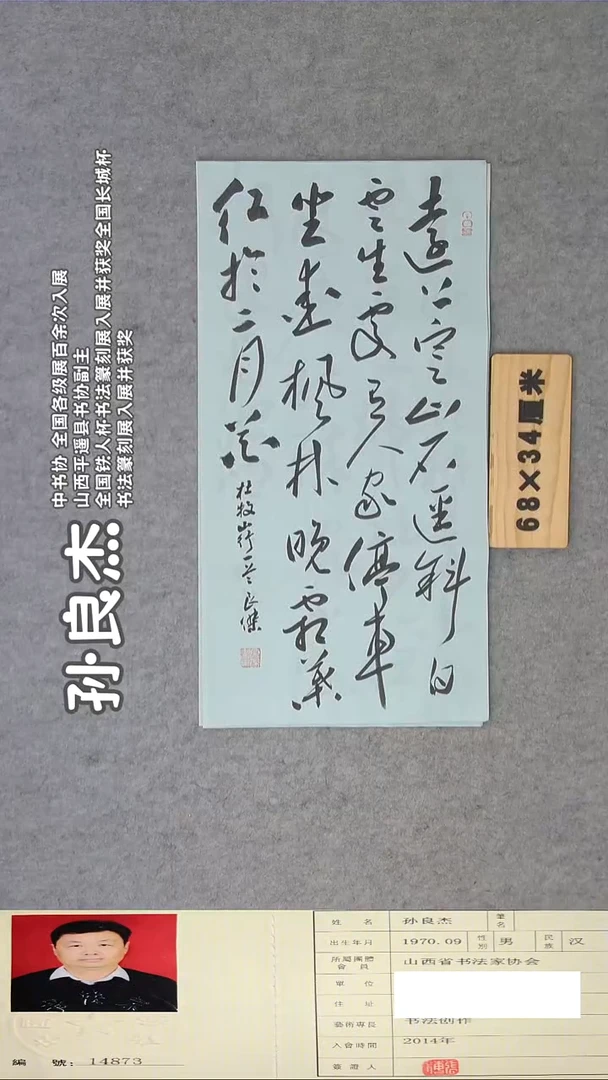 孙良杰
中书协 全国各级展百余次入展
山西平遥县书协副主
全国铁人杯书法篆刻展入展并获奖全国长城杯
书法篆刻展入展并获奖
遠上寒山石逕斜白
雲生處有人家停車
坐愛楓林晚霜葉
紅於二月花
杜牧山行一首 良傑
68×34厘米
姓 名 孙良杰 筆名
出生年月 1970.09 性別 男 民族 汉
所屬團體會員 山西省书法家协会
單 位
住 址
藝術專長 书法创作
入會時間 2014年
簽證人
編 號: 14873